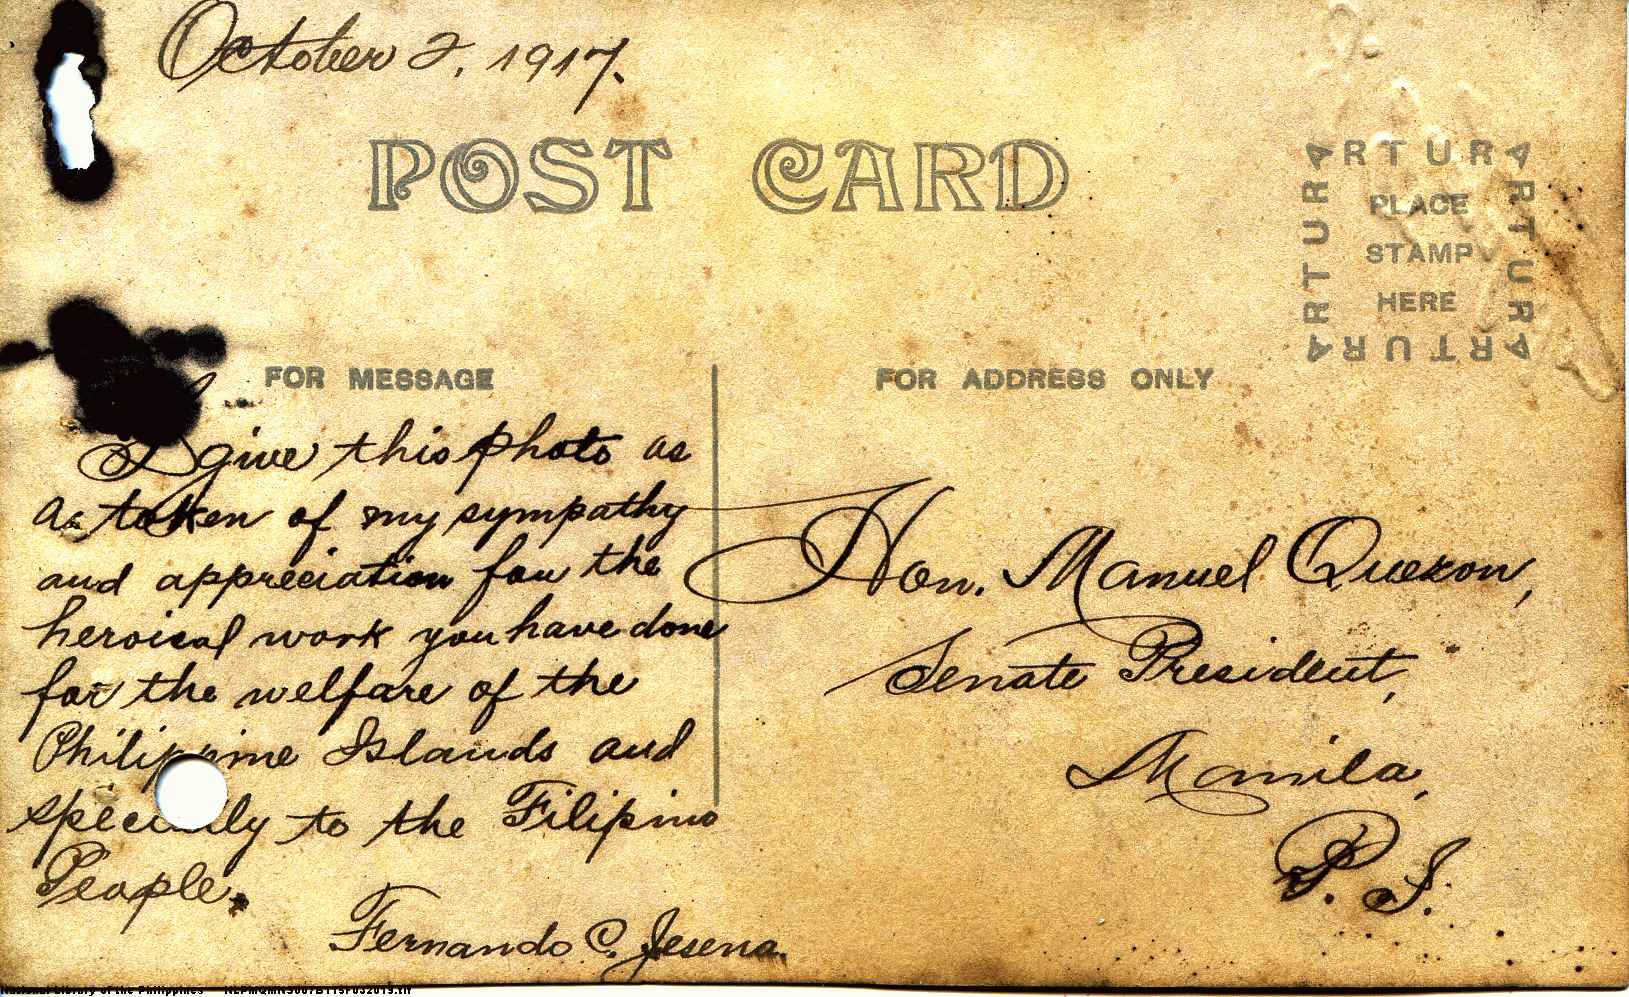 October 2, 1917.
POST CARD
ARTURA
ARTURA
ARTURA
ARTURA
PLACE
STAMP
HERE
FOR MESSAGE
FOR ADDRESS ONLY
I give this photo as
a token of my sympathy
and appreciation for the
heroical work you have done
for the welfare of the
Philippine Islands and
specially to the Filipino
People.
Fernando C. Jesena.
Hon. Manuel Quezon,
Senate President,
Manila,
P. I.
National Library of the Philippines